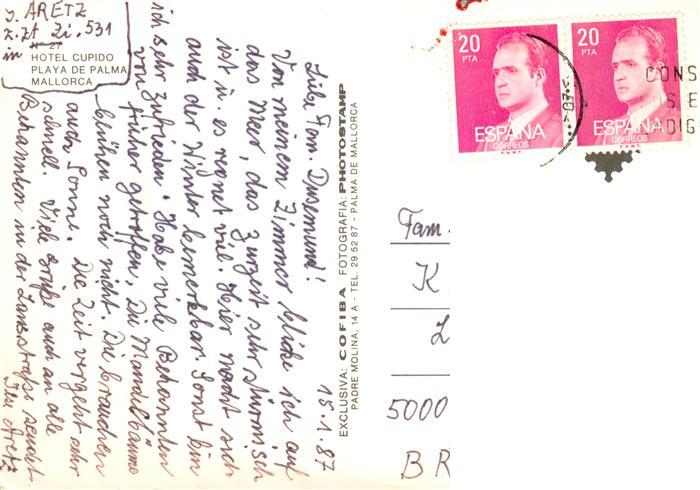 J. ARETZ
z.Zt Zi. 531
in
Nº 27
HOTEL CUPIDO
PLAYA DE PALMA
MALLORCA
15.1.87
Liebe Fam. Dusemund!
Von meinem Zimmer blicke ich auf
das Meer, das zurzeit sehr stürmisch
ist u. es regnet viel. Hier macht sich
auch der Winter bemerkbar. Sonst bin
ich sehr zufrieden. Habe viele Bekannten
von früher getroffen. Die Mandelbäume
blühen noch nicht. Die brauchen
auch Sonne. Die Zeit vergeht sehr
schnell. Viele Grüße auch an alle
Bekannten in der Lansstraße sendet
Ihr Aretz
EXCLUSIVA: COFIBA FOTOGRAFIA: PHOTOSTAMP
PADRE MOLINA, 14 A - TEL. 29 52 87 - PALMA DE MALLORCA
20
PTA
ESPAÑA
CORREOS
F.N.M.T.
20
PTA
ESPAÑA
CORREOS
F.N.M.T.
CONS
S E
DIG
Fam.
K
L
5000
BR